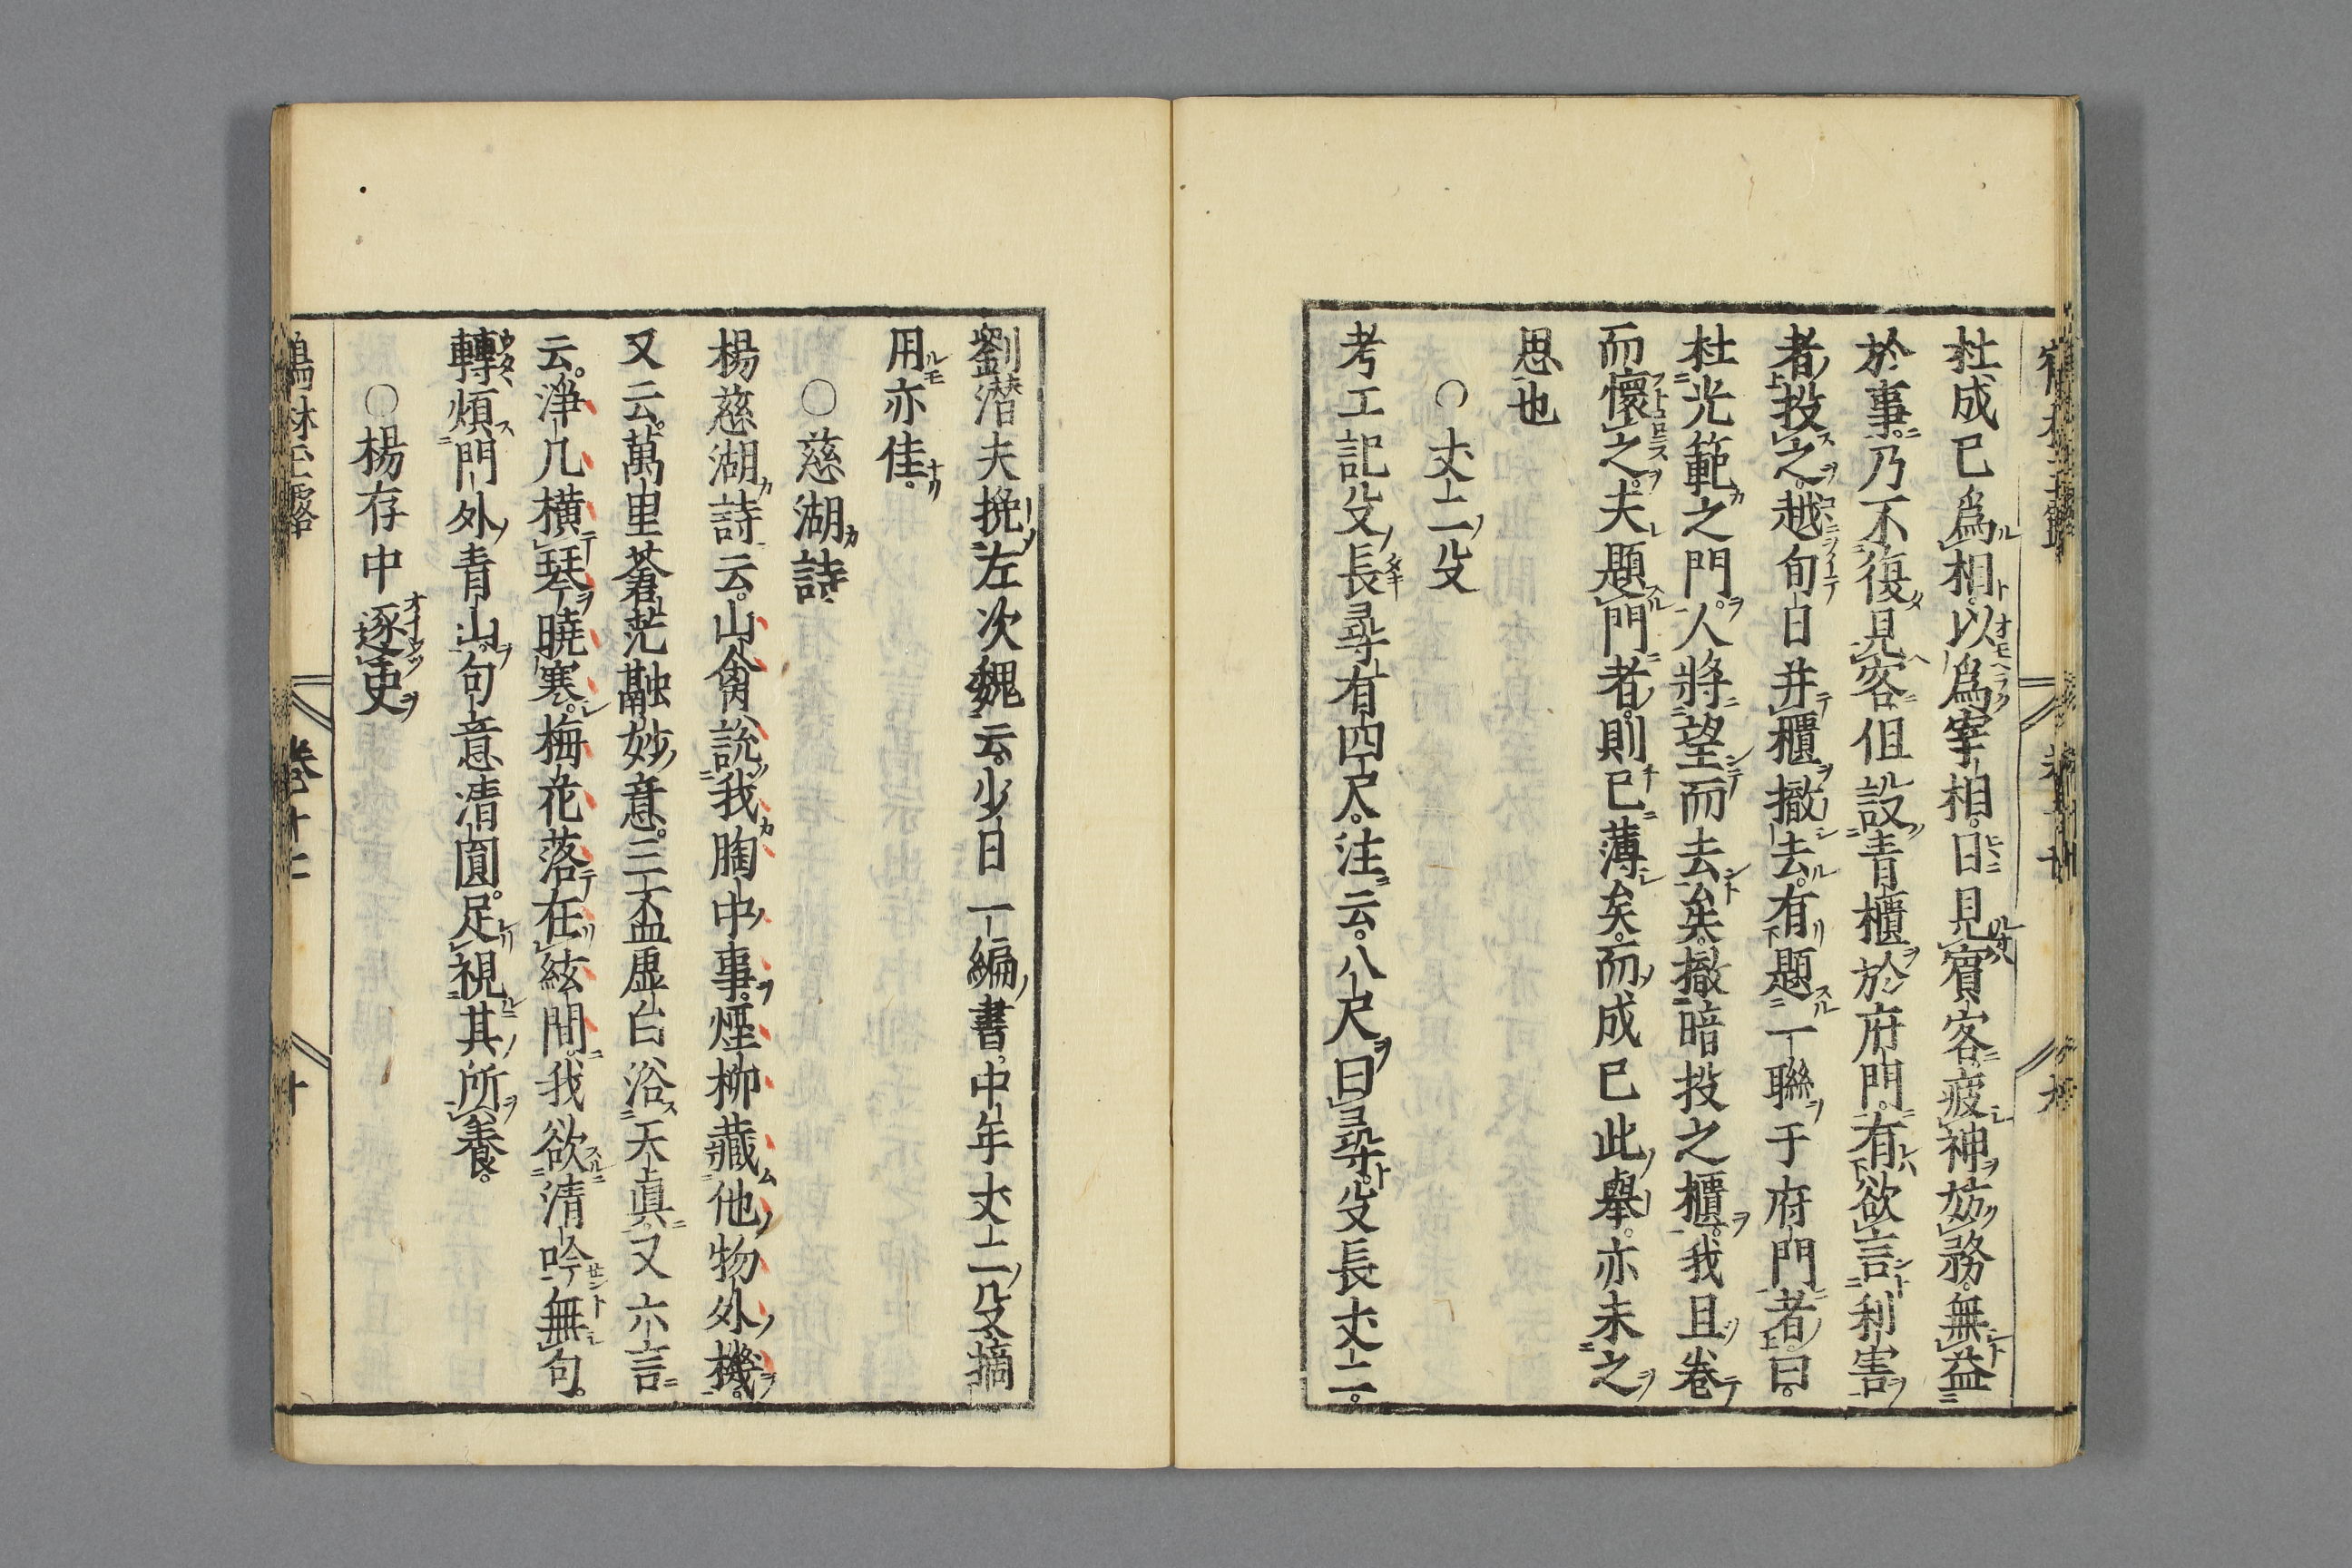 杜成已爲相以爲宰相日見賓客疲神妨務無益
於事乃不復見客但設青櫃於府門有欲言利害
者投之越旬日并櫃撤去有題一聯于府門者曰
杜光範之門人將望而去矣撤暗投之櫃我且卷
而懷之夫題門者則已薄矣而成已此舉亦未之
思也
○丈二殳
考工記殳長尋有四尺注云八尺曰尋殳長丈二
劉潜夫挽左次魏云少日一編書中年丈二殳摘
用亦佳
○慈湖詩
楊慈湖詩云山禽說我胸中事煙柳藏他物外機
又云萬里蒼茫融妙意三盃虛白浴天眞又六言
云淨几橫琴曉寒梅花落在絃間我欲清吟無句
轉煩門外青山句意清圓足視其所養
○楊存中逐吏
鶴林玉露　卷十二　十